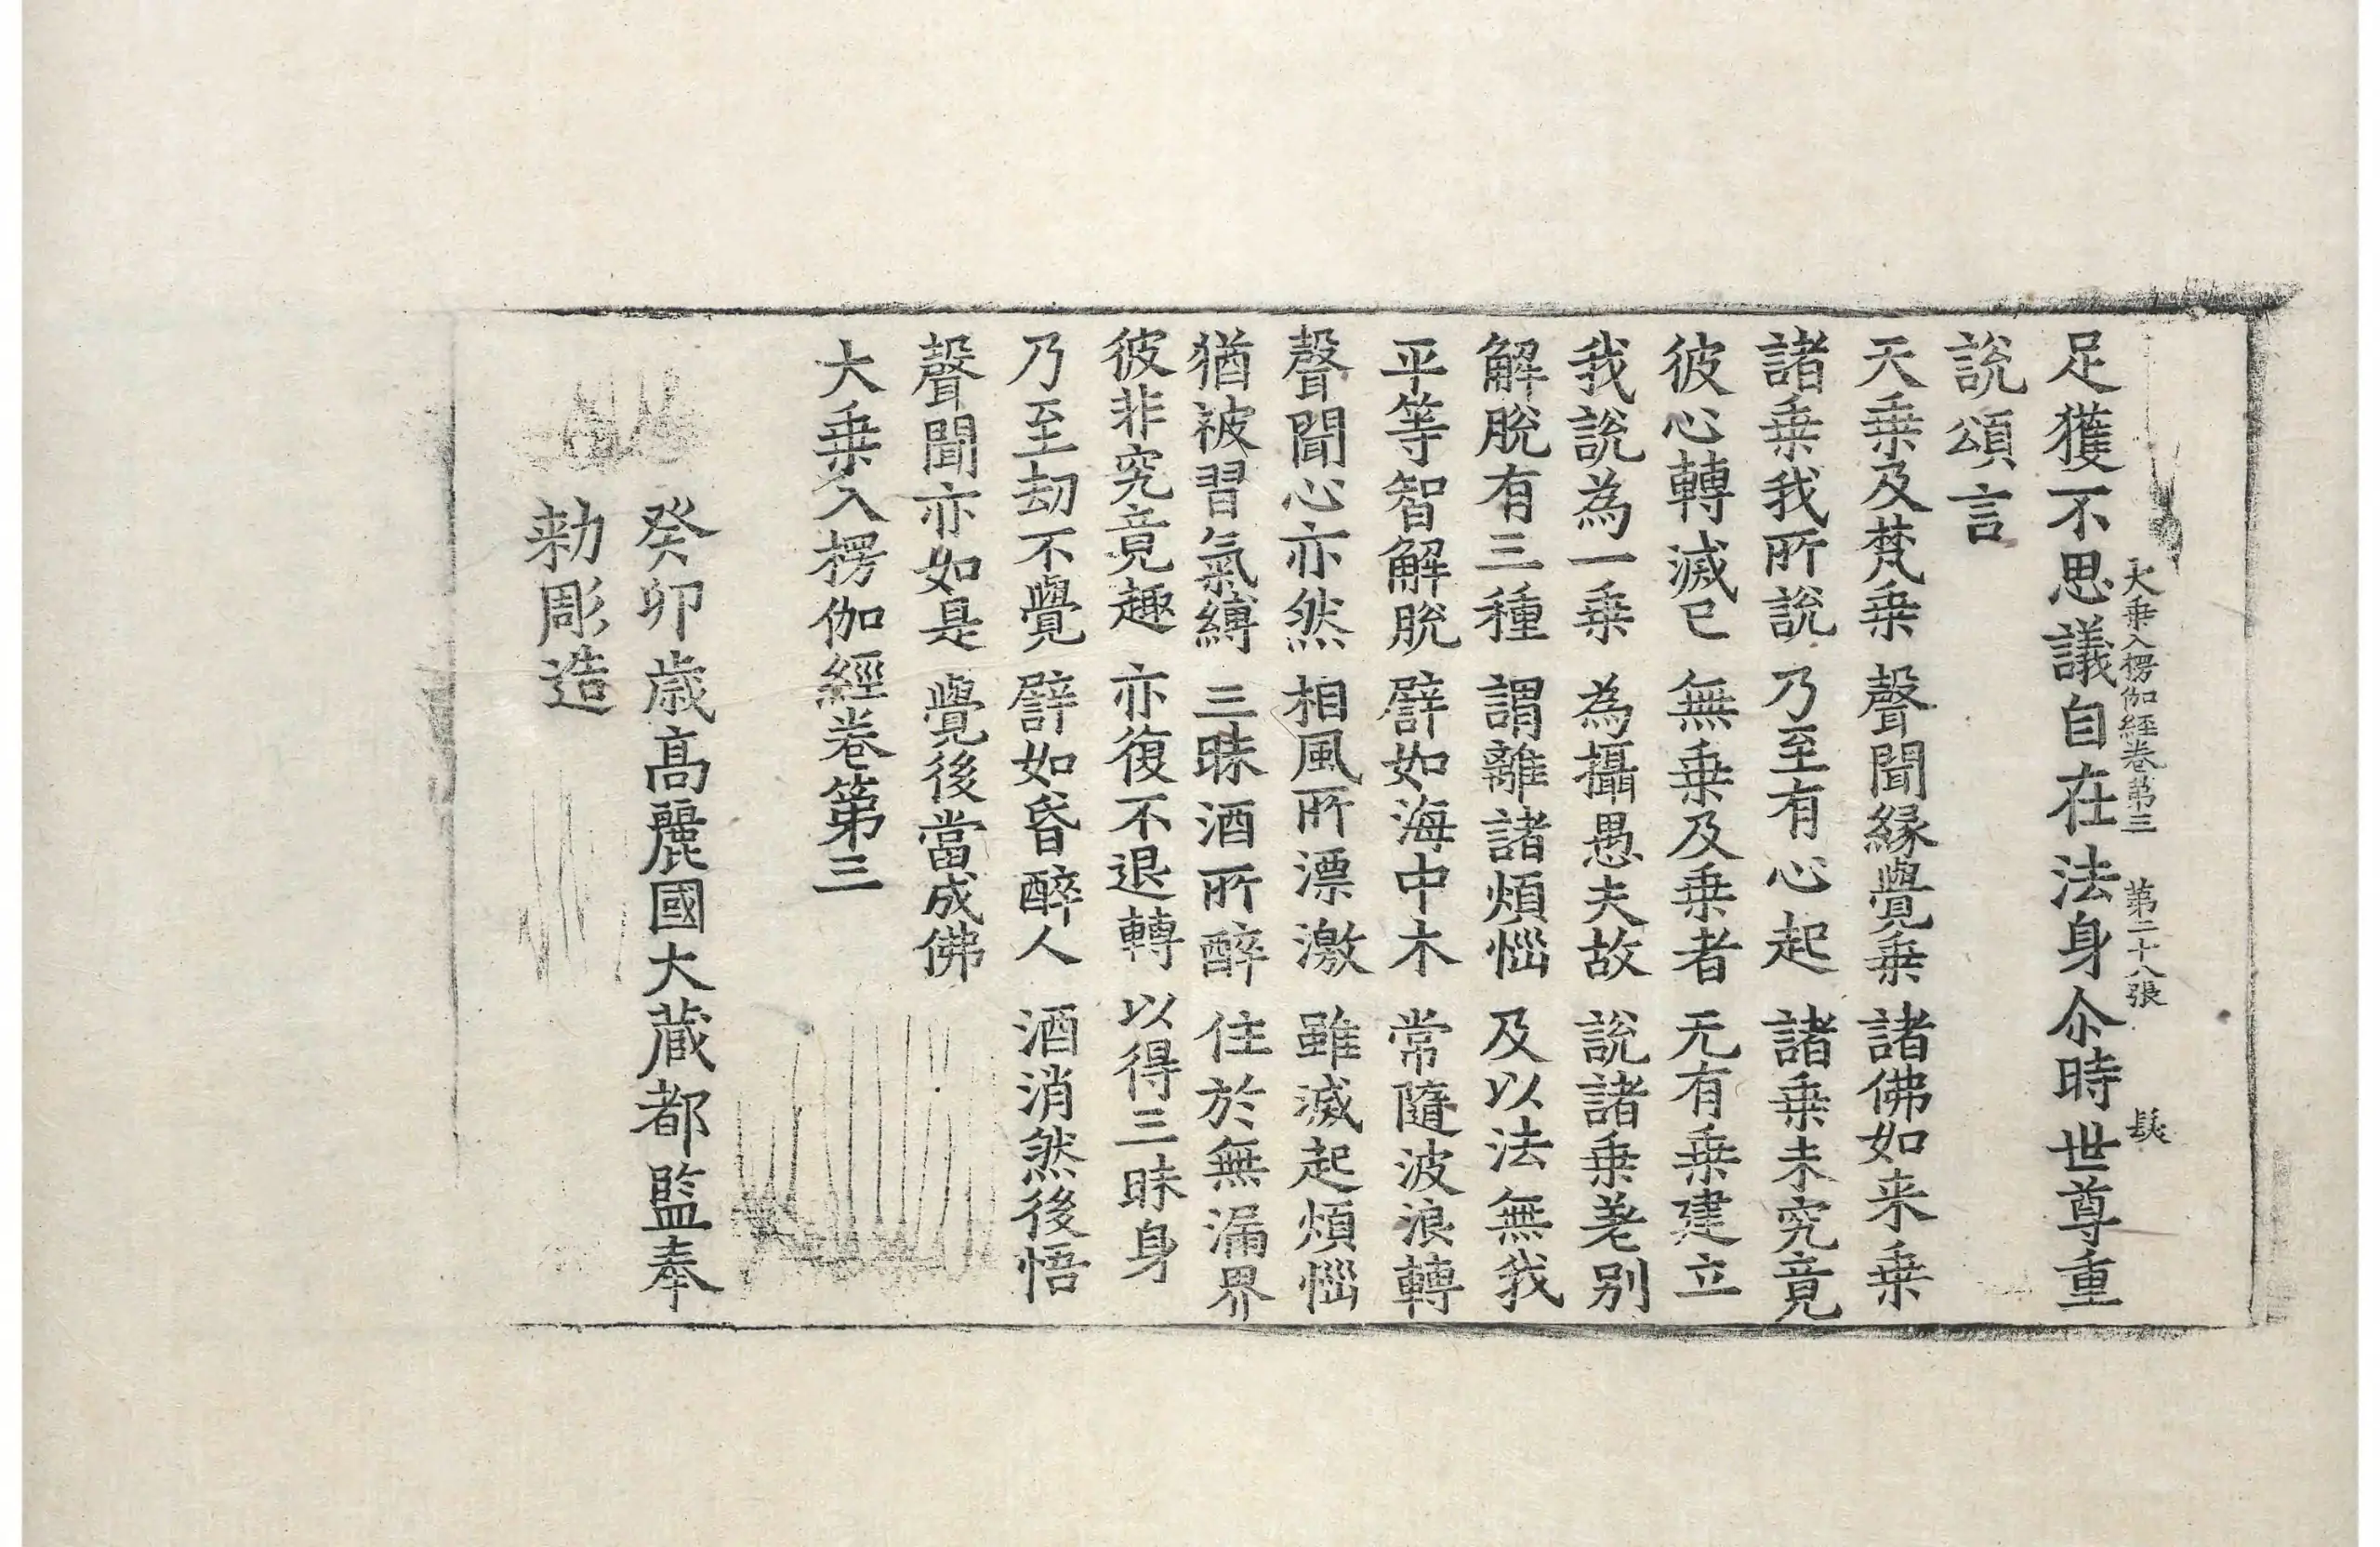 大乗入楞伽經卷第三 第二十八張 髮
足獲不思議自在法身尒時世尊重
說頌言
天乗及梵乗 聲聞緣覺乗 諸佛如来乗
諸乗我所說 乃至有心起 諸乗未究竟
彼心轉滅已 無乗及乗者 无有乗建立
我說為一乗 為攝愚夫故 說諸乗差别
解脫有三種 謂離諸煩惱 及以法無我
平等智解脫 譬如海中木 常隨波浪轉
聲聞心亦然 相風所漂激 雖滅起煩惱
猶被習氣縛 三昧酒所醉 住於無漏界
彼非究竟趣 亦復不退轉 以得三昧身
乃至劫不覺 譬如昏醉人 酒消然後悟
聲聞亦如是 覺後當成佛
大乗入楞伽經卷第三
癸卯歳高麗國大藏都監奉
勑彫造